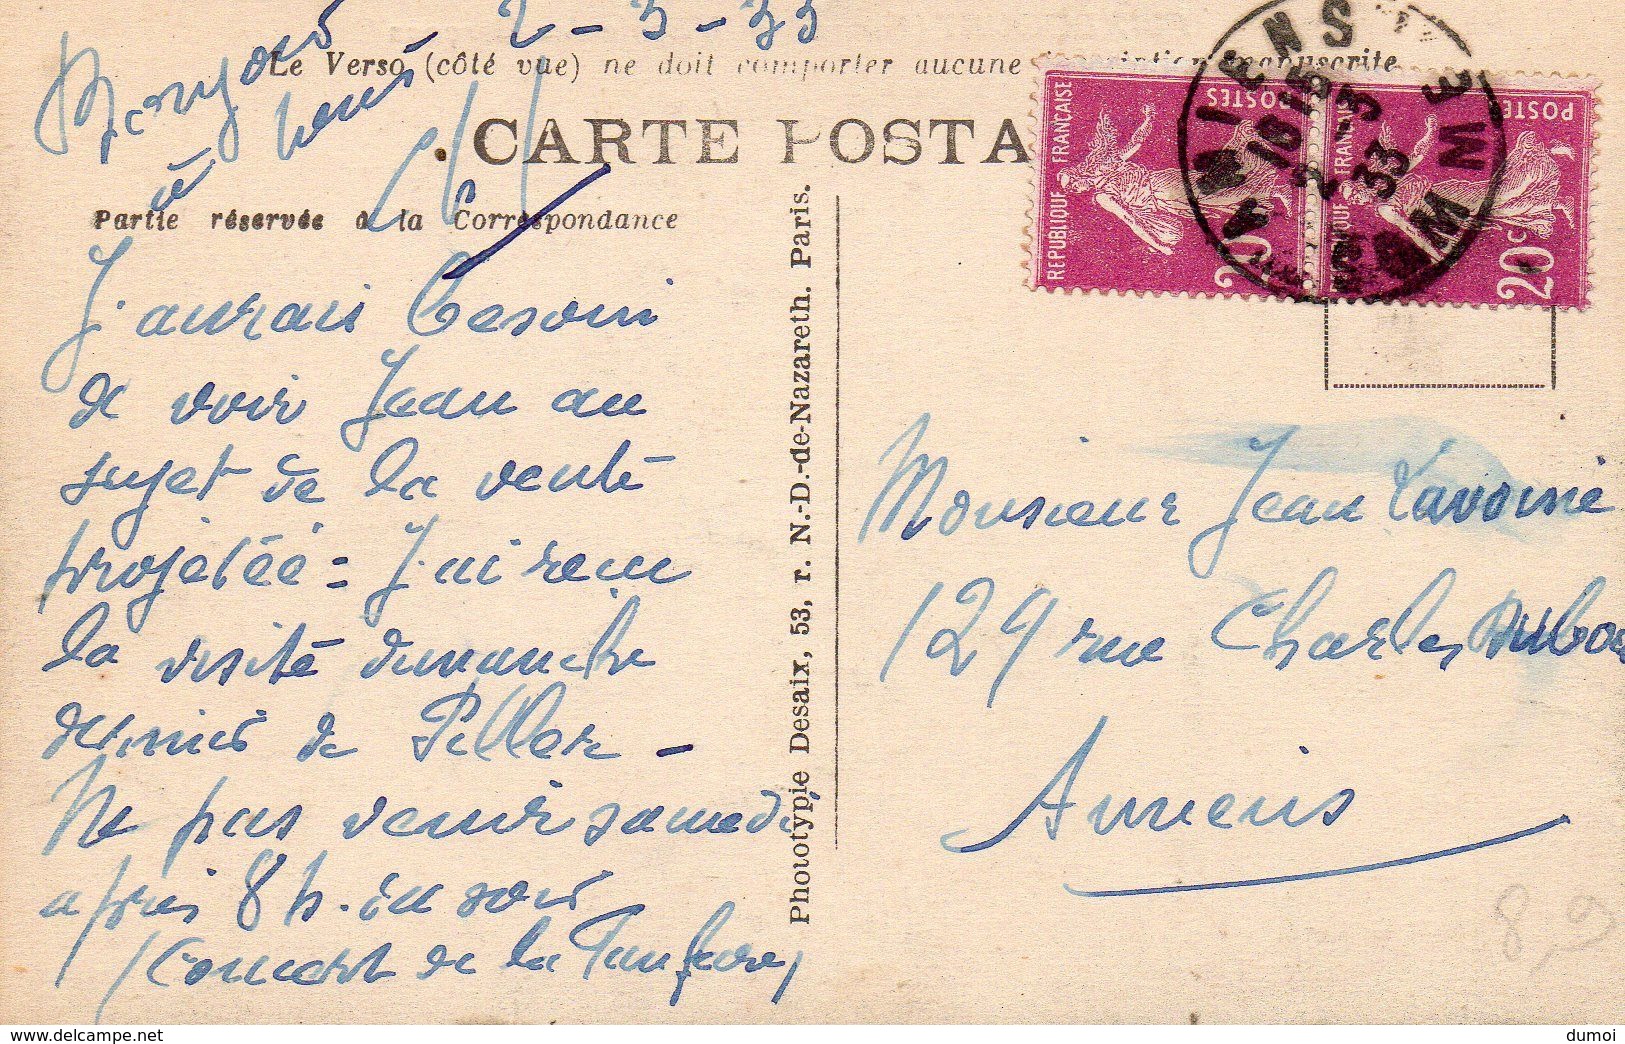 2-3-33
Le Verso (côté vue) ne doit comporter aucune inscription manuscrite
Bonjours
à tous
CARTE POSTA
Partie réservée à la Correspondance
J'aurais besoin
de voir Jean au
sujet de la vente
projetée = J'ai recu
la visite dimanche
dernier de Piller -
Ne pas venir samedi
après 8 h. du soir
(Concert de la Fanfare)
Phototypie Desaix, 53, r. N.-D.-de-Nazareth. Paris.
REPUBLIQUE FRANÇAISE
POSTES
20
FRANÇAISE
POSTES
20c
AMIENS
16 15
2-3
33
SOMME
Monsieur Jean Lavoine
129 rue Charles Dubois
Amiens
8,9
dumoi